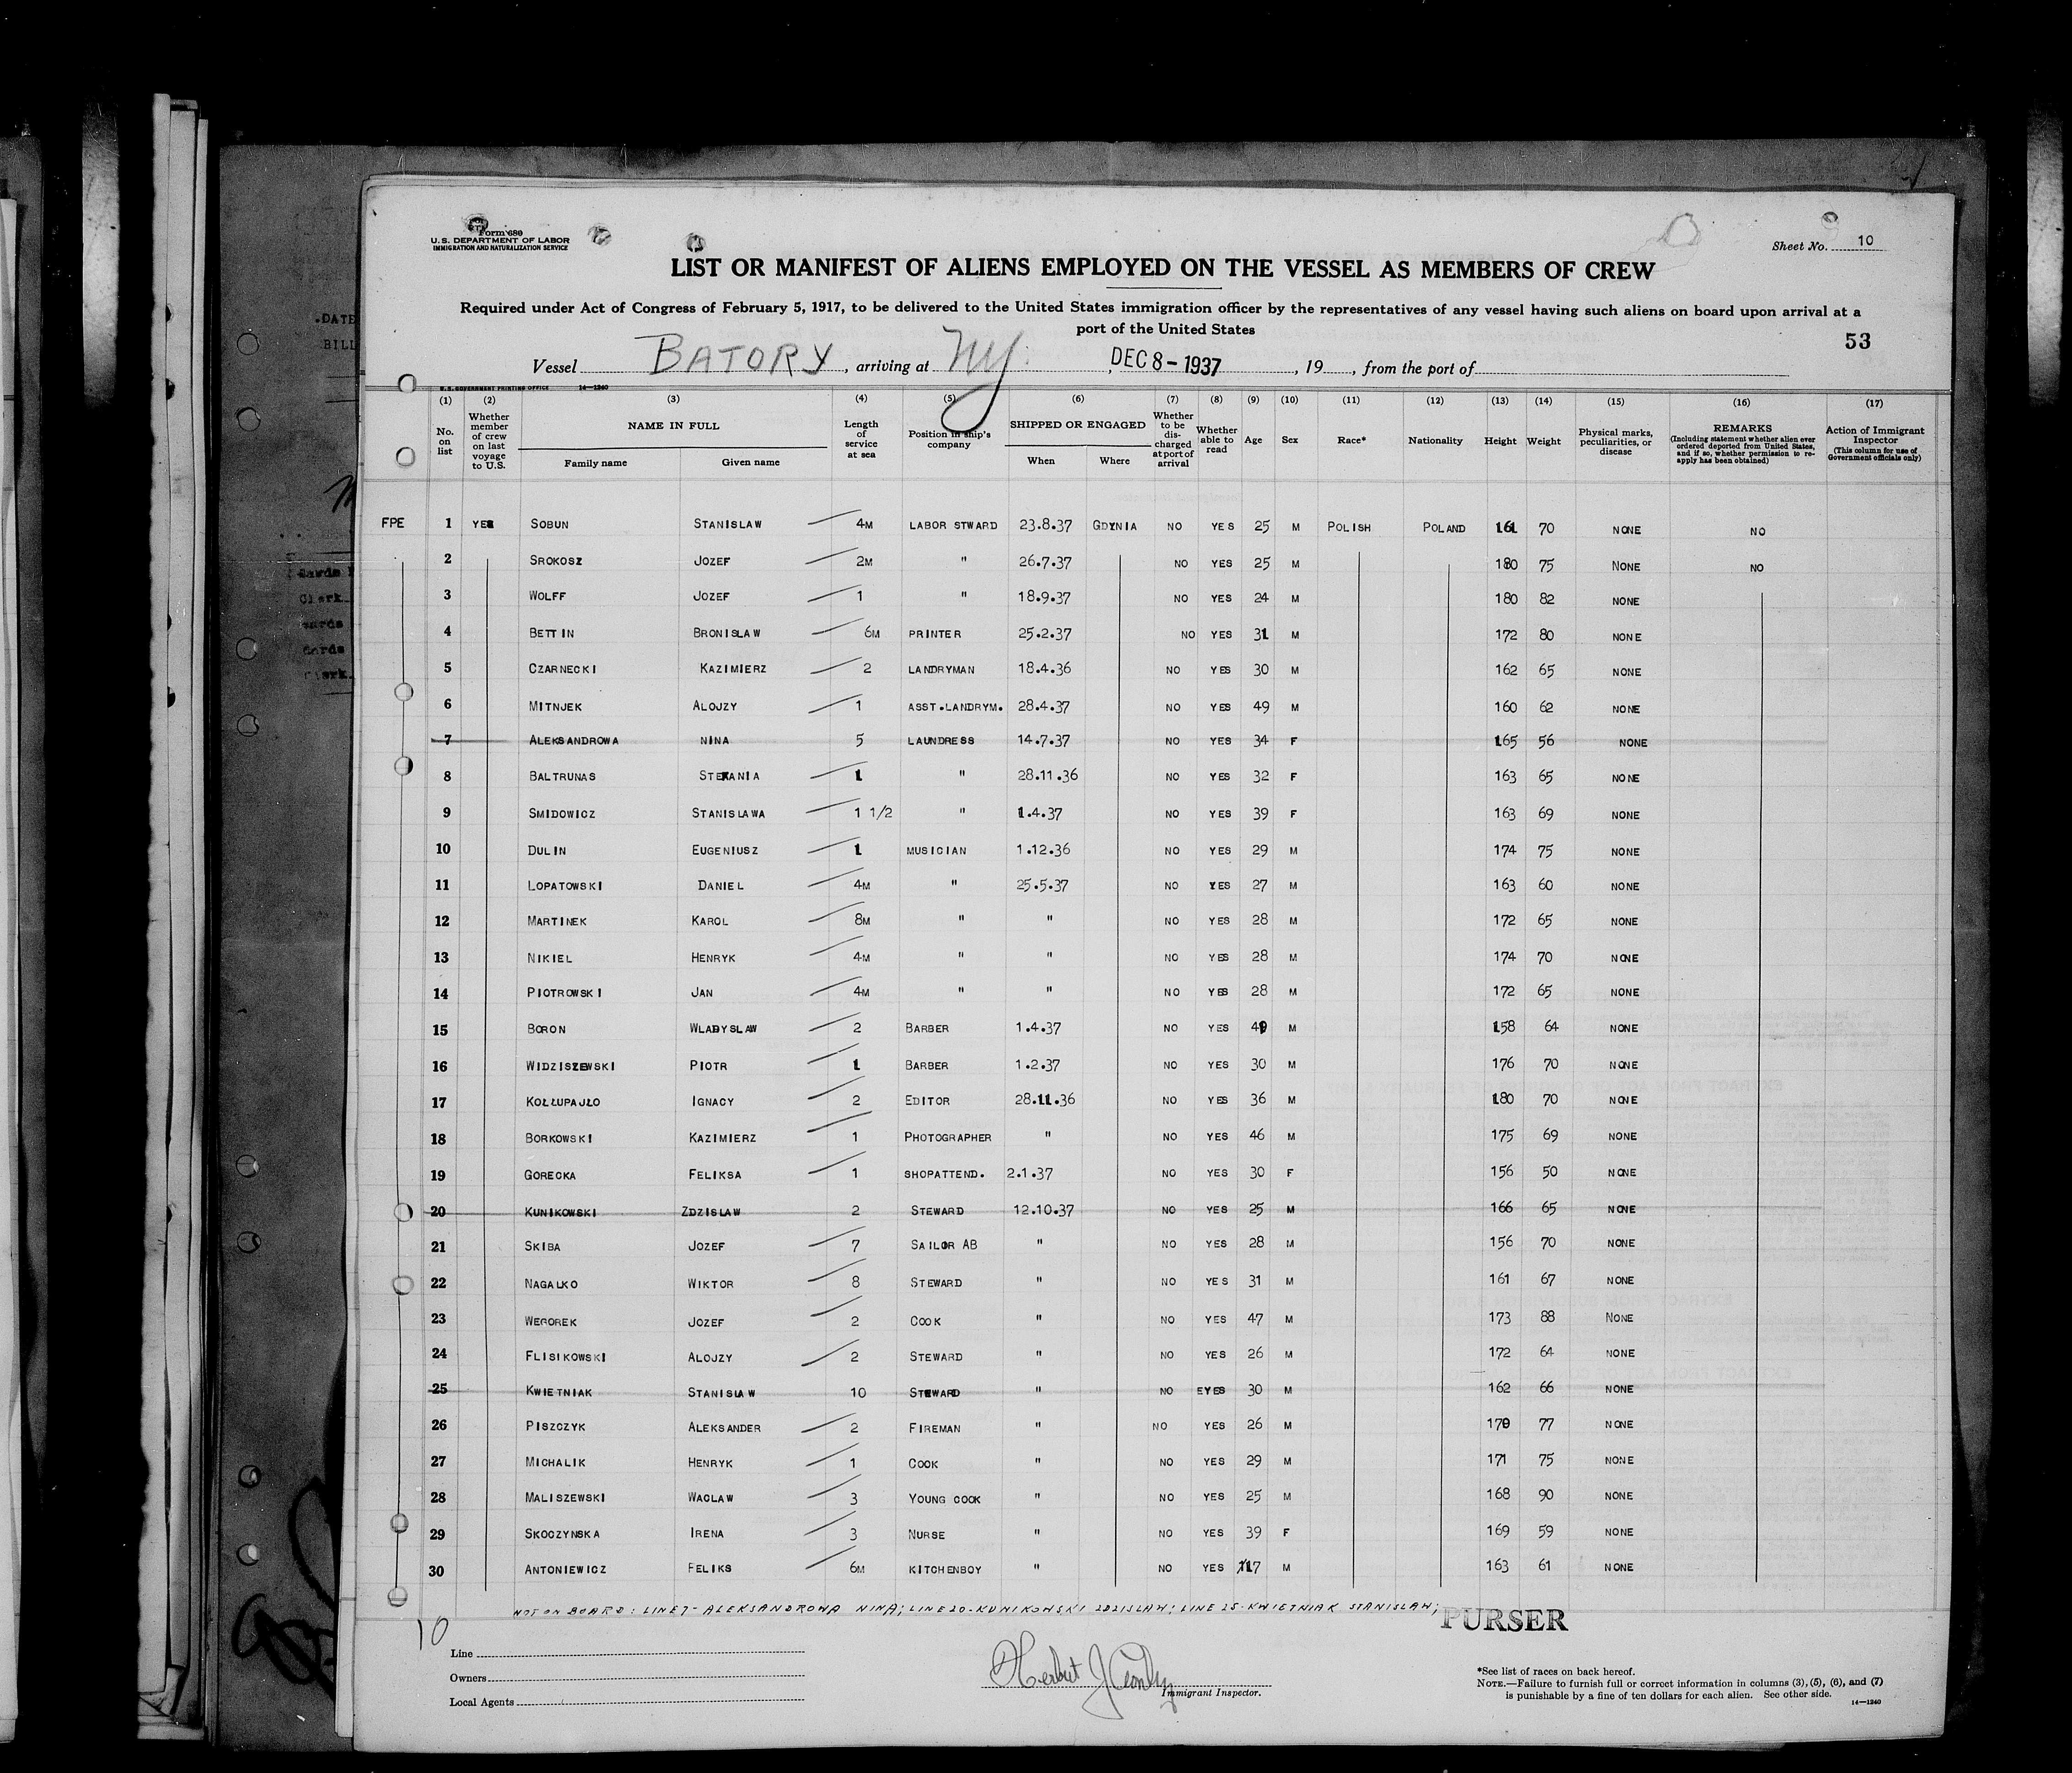 Form 680
U.S. DEPARTMENT OF LABOR
IMMIGRATION AND NATURALIZATION SERVICE
Sheet No. 10
LIST OR MANIFEST OF ALIENS EMPLOYED ON THE VESSEL AS MEMBERS OF CREW
Required under Act of Congress of February 5, 1917, to be delivered to the United States immigration officer by the representatives of any vessel having such aliens on board upon arrival at a
port of the United States
53
Vessel BATORY, arriving at NY, DEC 8 - 1937, 19, from the port of
U.S. GOVERNMENT PRINTING OFFICE 14—1240
(1) No. on list (2) Whether member of crew on last voyage to U.S. (3) NAME IN FULL Family name Given name (4) Length of service at sea (5) Position in ship's company (6) SHIPPED OR ENGAGED When Where (7) Whether to be discharged at port of arrival (8) Whether able to read (9) Age (10) Sex (11) Race* (12) Nationality (13) Height (14) Weight (15) Physical marks, peculiarities, or disease (16) REMARKS (Including statement whether alien ever ordered deported from United States, and if so, whether permission to re-apply has been obtained) (17) Action of Immigrant Inspector (This column for use of Government officials only)
FPE 1 YES SOBUN STANISLAW 4M LABOR STWARD 23.8.37 GDYNIA NO YES 25 M POLISH POLAND 161 70 NONE NO
2 SROKOSZ JOZEF 2M " 26.7.37 NO YES 25 M 180 75 NONE NO
3 WOLFF JOZEF 1 " 18.9.37 NO YES 24 M 180 82 NONE
4 BETTIN BRONISLAW 6M PRINTER 25.2.37 NO YES 31 M 172 80 NONE
5 CZARNECKI KAZIMIERZ 2 LANDRYMAN 18.4.36 NO YES 30 M 162 65 NONE
6 MITNJEK ALOJZY 1 ASST.LANDRYM. 28.4.37 NO YES 49 M 160 62 NONE
7 ALEKSANDROWA NINA 5 LAUNDRESS 14.7.37 NO YES 34 F 165 56 NONE
8 BALTRUNAS STEFANIA 1 " 28.11.36 NO YES 32 F 163 65 NONE
9 SMIDOWICZ STANISLAWA 1 1/2 " 1.4.37 NO YES 39 F 163 69 NONE
10 DULIN EUGENIUSZ 1 MUSICIAN 1.12.36 NO YES 29 M 174 75 NONE
11 LOPATOWSKI DANIEL 4M " 25.5.37 NO YES 27 M 163 60 NONE
12 MARTINEK KAROL 8M " " NO YES 28 M 172 65 NONE
13 NIKIEL HENRYK 4M " " NO YES 28 M 174 70 NONE
14 PIOTROWSKI JAN 4M " " NO YES 28 M 172 65 NONE
15 BORON WLADYSLAW 2 BARBER 1.4.37 NO YES 49 M 158 64 NONE
16 WIDZISZEWSKI PIOTR 1 BARBER 1.2.37 NO YES 30 M 176 70 NONE
17 KOŁŁUPAJŁO IGNACY 2 EDITOR 28.11.36 NO YES 36 M 180 70 NONE
18 BORKOWSKI KAZIMIERZ 1 PHOTOGRAPHER " NO YES 46 M 175 69 NONE
19 GORECKA FELIKSA 1 SHOPATTEND. 2.1.37 NO YES 30 F 156 50 NONE
20 KUNIKOWSKI ZDZISLAW 2 STEWARD 12.10.37 NO YES 25 M 166 65 NONE
21 SKIBA JOZEF 7 SAILOR AB " NO YES 28 M 156 70 NONE
22 NAGALKO WIKTOR 8 STEWARD " NO YES 31 M 161 67 NONE
23 WEGOREK JOZEF 2 COOK " NO YES 47 M 173 88 NONE
24 FLISIKOWSKI ALOJZY 2 STEWARD " NO YES 26 M 172 64 NONE
25 KWIETNIAK STANISLAW 10 STEWARD " NO EYES 30 M 162 66 NONE
26 PISZCZYK ALEKSANDER 2 FIREMAN " NO YES 26 M 170 77 NONE
27 MICHALIK HENRYK 1 COOK " NO YES 29 M 171 75 NONE
28 MALISZEWSKI WACLAW 3 YOUNG COOK " NO YES 25 M 168 90 NONE
29 SKOCZYNSKA IRENA 3 NURSE " NO YES 39 F 169 59 NONE
30 ANTONIEWICZ FELIKS 6M KITCHENBOY " NO YES 17 M 163 61 NONE
NOT ON BOARD: LINE 7 - ALEKSANDROWA NINA; LINE 20 - KUNIKOWSKI ZDZISLAW; LINE 25 - KWIETNIAK STANISLAW;
PURSER
10
Line
Owners
Local Agents
Herbert J
Immigrant Inspector.
*See list of races on back hereof.
NOTE.—Failure to furnish full or correct information in columns (3), (5), (6), and (7)
is punishable by a fine of ten dollars for each alien. See other side.
14—1240